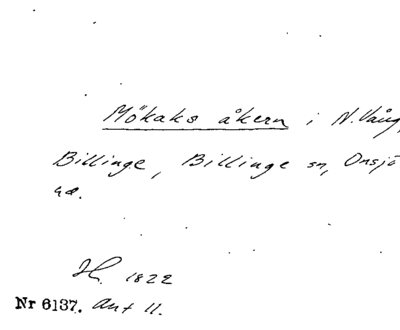 Mökaks åkern i N. Vång,
Billinge, Billinge sn, Onsjö
hd.
H. 1822
Nr 6137. Ant 11.